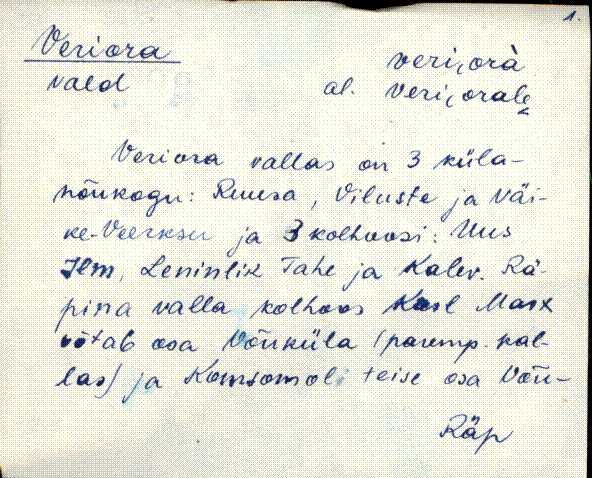 1.
Veriora veri,orà
vald al. veri,orale
Veriora vallas on 3 küla-
nõukogu: Ruusa, Viluste ja Väi-
ke-Veerksu ja 3 kolhoosi: Uus
Ilm, Leninlik Tahe ja Kalev. Rä-
pina valla kolhoos Karl Marx
võtab osa Võuküla (paremp. kal-
las) ja Komsomoli teise osa Võu-
Räp